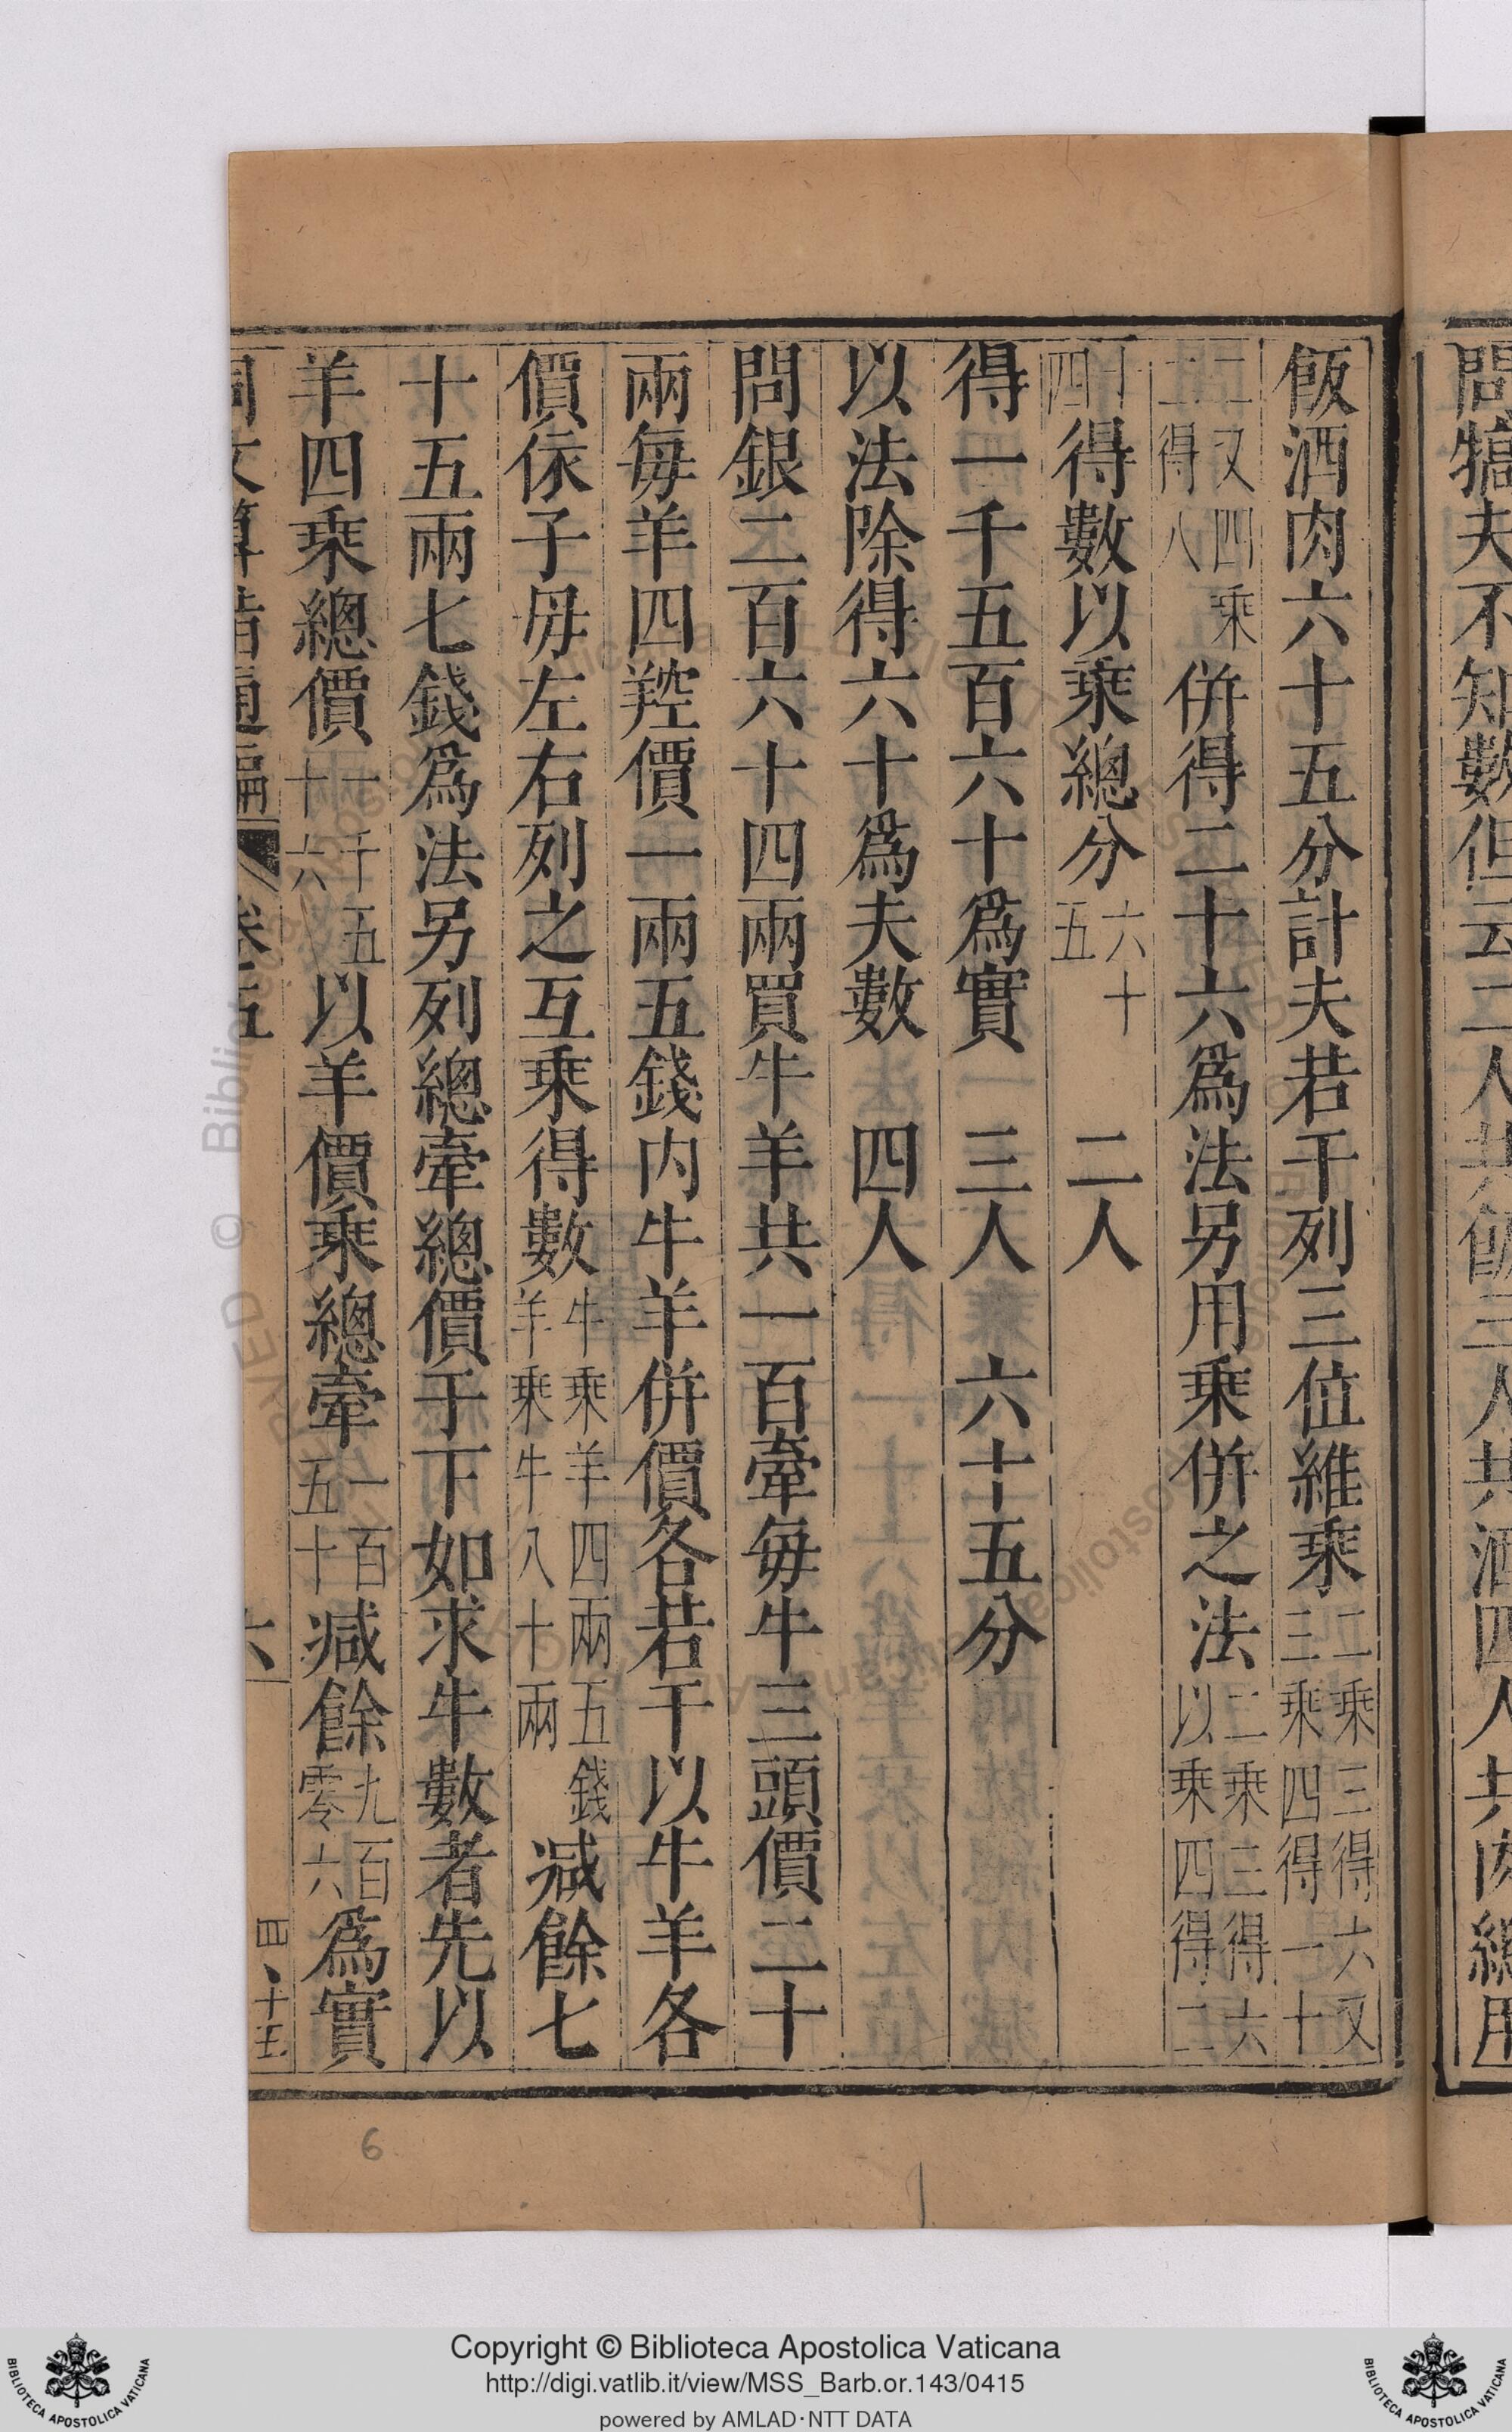 問犒夫不知數但云二人共飯三人共酒四人共肉總用
飯酒肉六十五分計夫若干列三位維乘二乘三得六又三乘四得一十
二又四乘二得八併得二十六爲法另用乘併之法二乘三得六以乘四得二
十四得數以乘總分六十五　二人
得一千五百六十爲實　三人　六十五分
以法除得六十爲夫數　四人
問銀二百六十四兩買牛羊共一百牽每牛三頭價二十
兩每羊四羫價一兩五錢内牛羊併價各若干以牛羊各
價依子毋左右列之互乘得數牛乘羊四兩五錢羊乘牛八十兩减餘七
十五兩七錢爲法另列總牽總價于下如求牛數者先以
羊四乘總價一千五十六以羊價乘總牽一百五十减餘九百零六爲實
同文算指通編　卷五　六　四、十五
6
Copyright © Biblioteca Apostolica Vaticana
http://digi.vatlib.it/view/MSS_Barb.or.143/0415
powered by AMLAD·NTT DATA
BIBLIOTECA APOSTOLICA VATICANA
BIBLIOTECA APOSTOLICA VATICANA